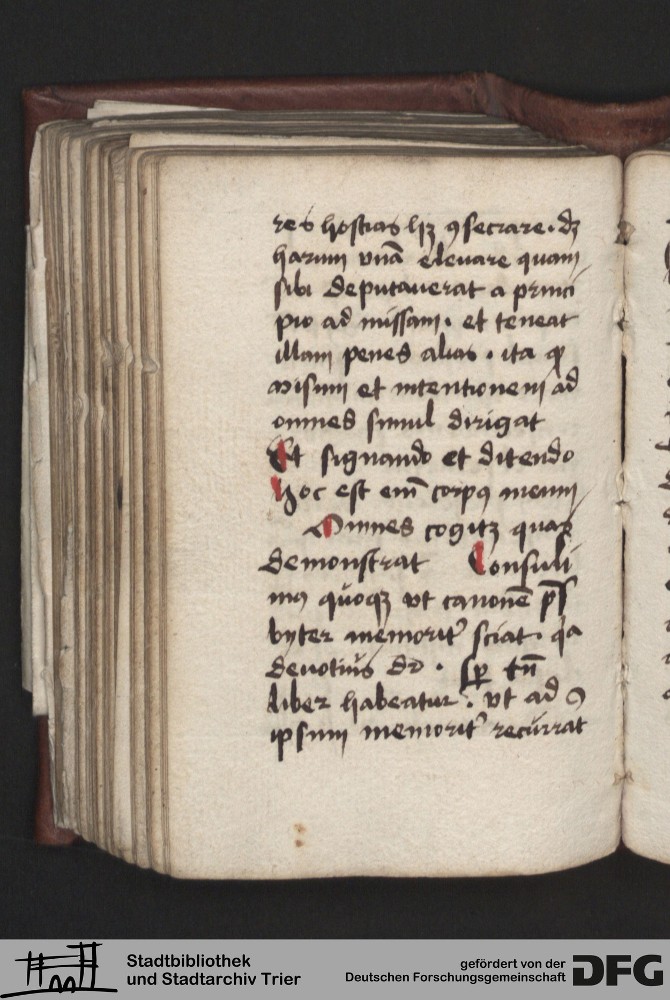 res hostias hꝫ ꝯsecrare. dꝫ
harum vnā eleuare quam
sibi deputauerat a princi
pio ad missam. et teneat
illam penes alias. ita ꝙ
visum et intentionem ad
omnes simul dirigat
Et signando et dicendo
hoc est eni᷒ corpꝰ meum
Omnes cogitꝫ quas
demonstrat Consuli
mꝰ quoqꝫ vt canonē p̄s
byter memorit᷒ sciat. qa
deuotius dr̄. sꝑ tn̄
liber habeatur. vt ad
ipsum memorit᷒ recurrat
Stadtbibliothek
und Stadtarchiv Trier
gefördert von der
Deutschen Forschungsgemeinschaft
DFG